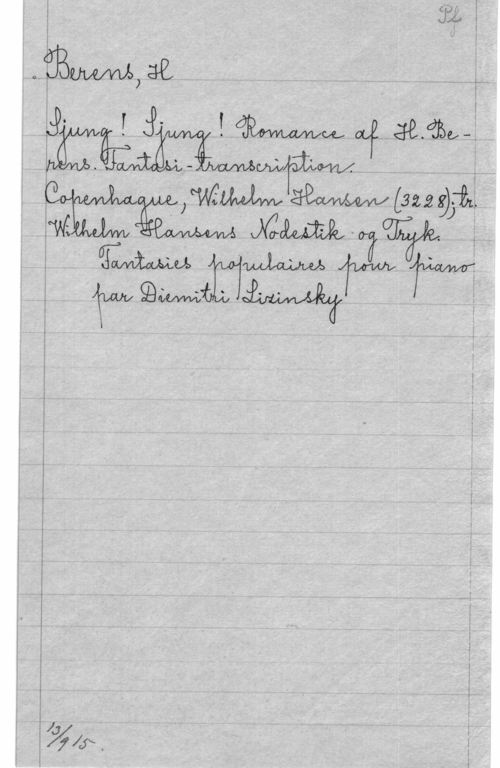 Pf
Berens, H
Sjung! Sjung! Romance af H. Be-
rens. Fantasi-transcription.
Copenhague, Wilhelm Hansen (3228); tr.
Wilhelm Hansens Nodestik og Tryk.
Fantasies populaires pour piano
par Diemitri Lizinsky
13/9 15.